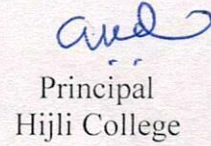 Principal
Hijli College